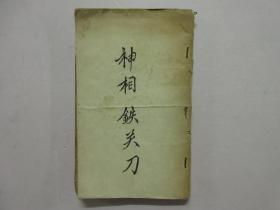 神相鉄关刀